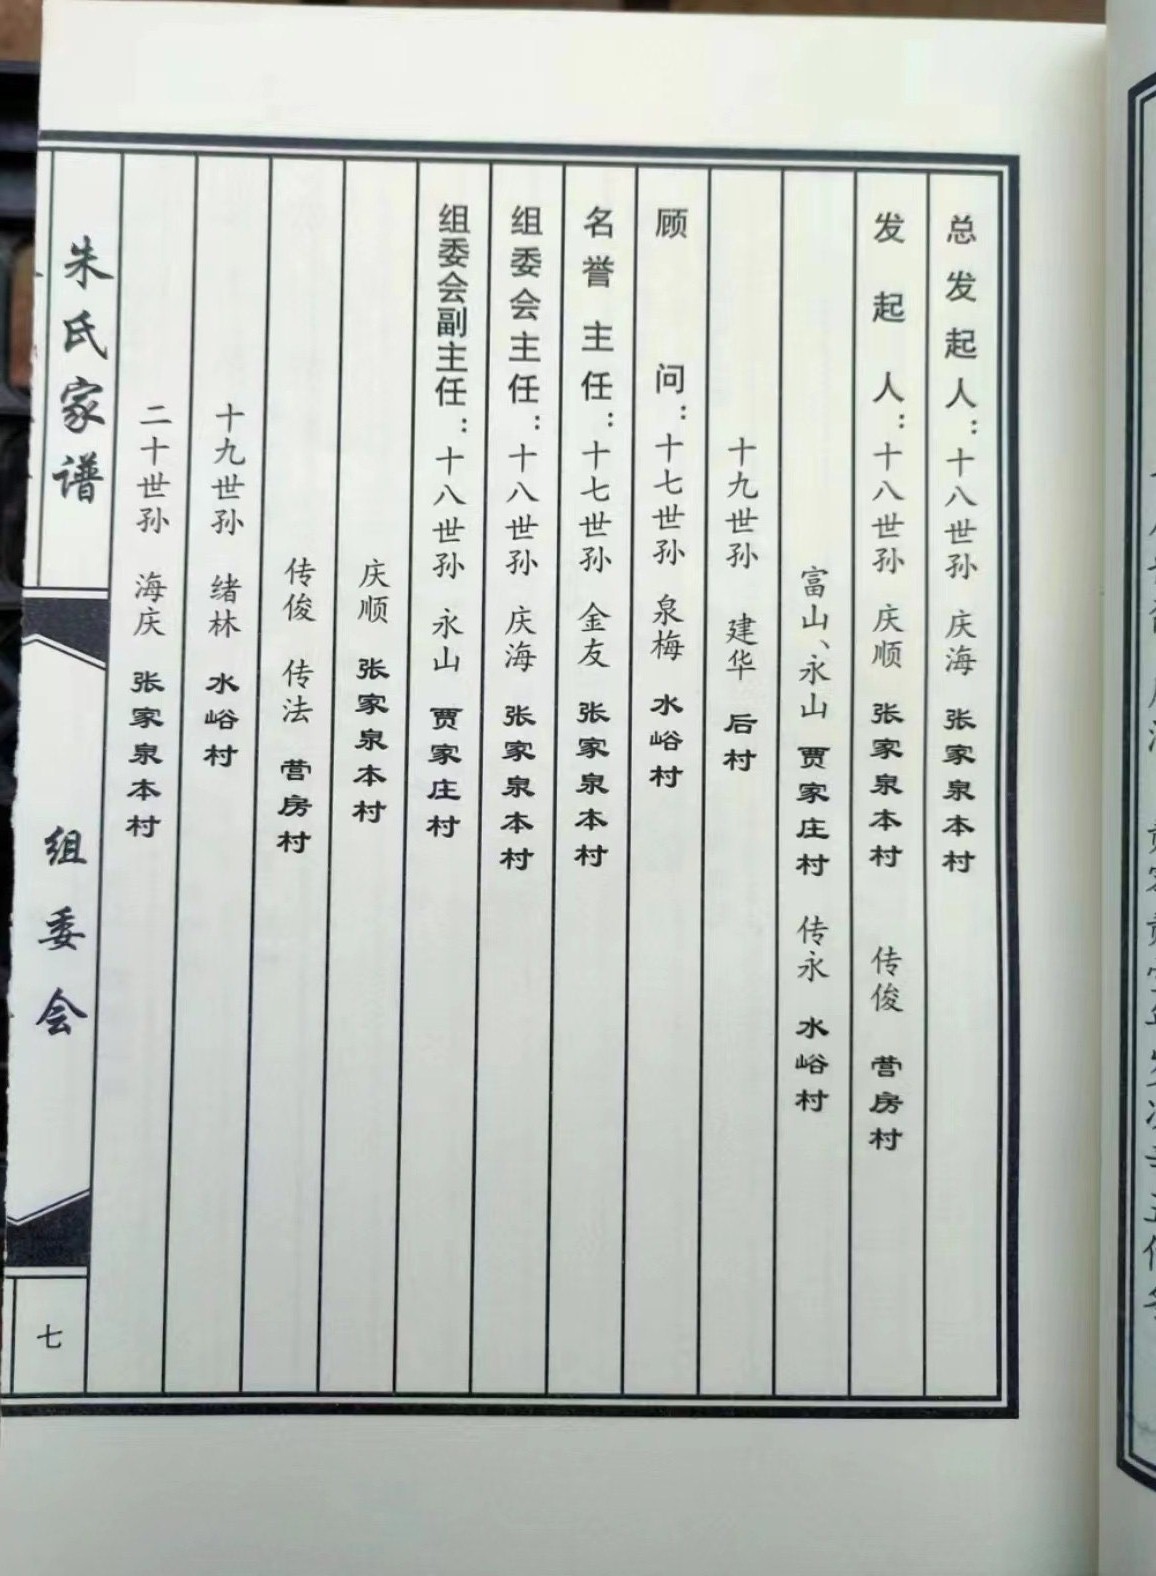 总发起人：十八世孙 庆海 张家泉本村
发起人：十八世孙 庆顺 张家泉本村 传俊 营房村
富山、永山 贾家庄村 传永 水峪村
十九世孙 建华 后村
顾问：十七世孙 泉梅 水峪村
名誉主任：十七世孙 金友 张家泉本村
组委会主任：十八世孙 庆海 张家泉本村
组委会副主任：十八世孙 永山 贾家庄村
庆顺 张家泉本村
传俊 传法 营房村
十九世孙 绪林 水峪村
二十世孙 海庆 张家泉本村
朱氏家谱
组委会
七